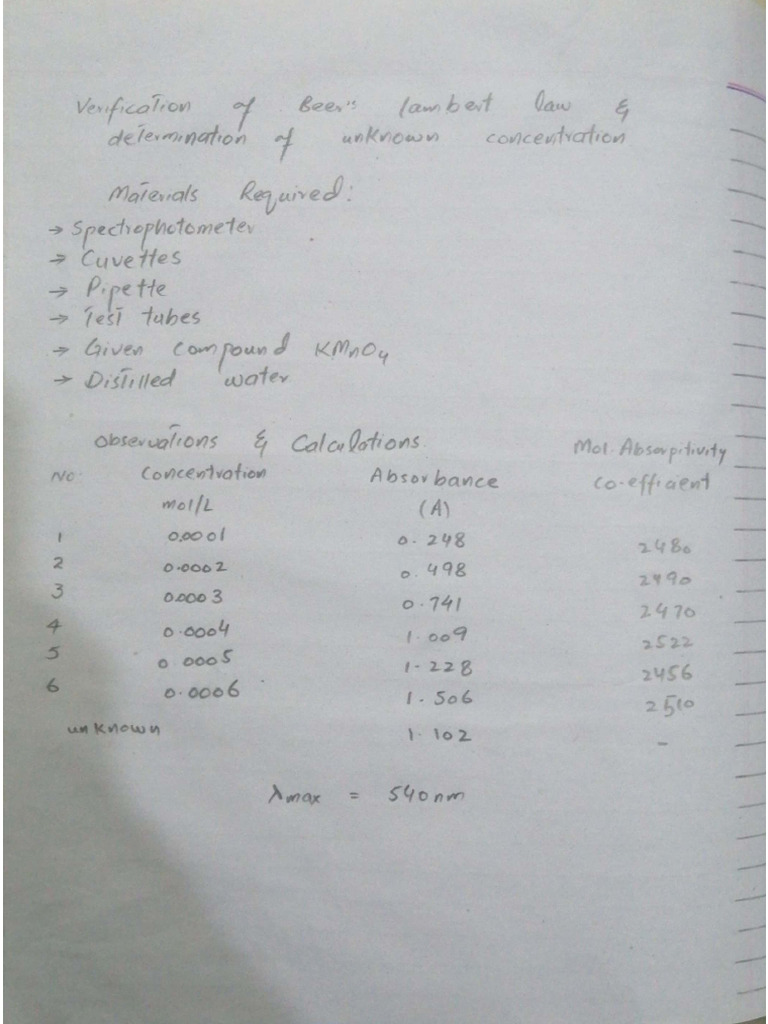 Verification of Beer's lambert law &
determination of unknown concentration
Materials Required:
→ Spectrophotometer
→ Cuvettes
→ Pipette
→ Test tubes
→ Given compound KMnO4
→ Distilled water
Observations & Calculations.
Mol. Absorpitivity
No. Concentration Absorbance co-efficient
mol/L (A)
1 0.0001 0.248 2480
2 0.0002 0.498 2490
3 0.0003 0.741 2470
4 0.0004 1.009 2522
5 0.0005 1.228 2456
6 0.0006 1.506 2510
unknown 1.102 -
λmax = 540nm